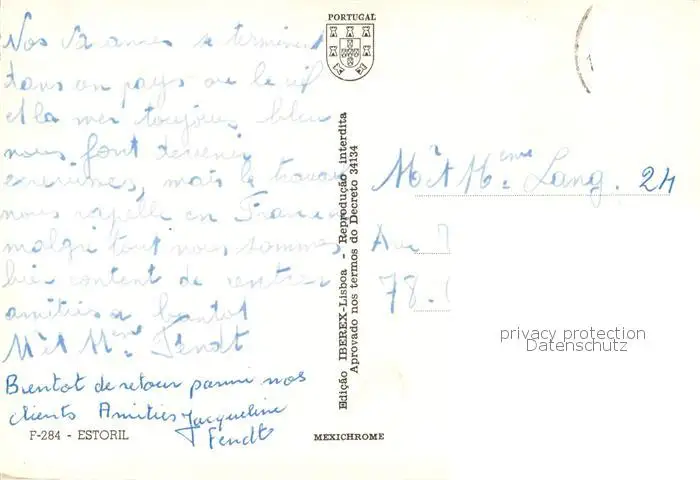 Nos Vacances se terminent
dans un pays ou le ciel
et la mer toujours bleu
nous font devenir
envieuses, mais le travail
nous rapelle en France
malgré tout nous sommes
bien content de rentrer
amitiés a bientot
Mr et Mme Fendt
Bientot de retour parmi nos
clients Amitiés Jacqueline
Fendt
F-284 - ESTORIL
PORTUGAL
Edição IBEREX-Lisboa - Reprodução interdita
Aprovado nos termos do Decreto 34134
MEXICHROME
Mr et Mme Lang. 24
Au
78.
privacy protection
Datenschutz